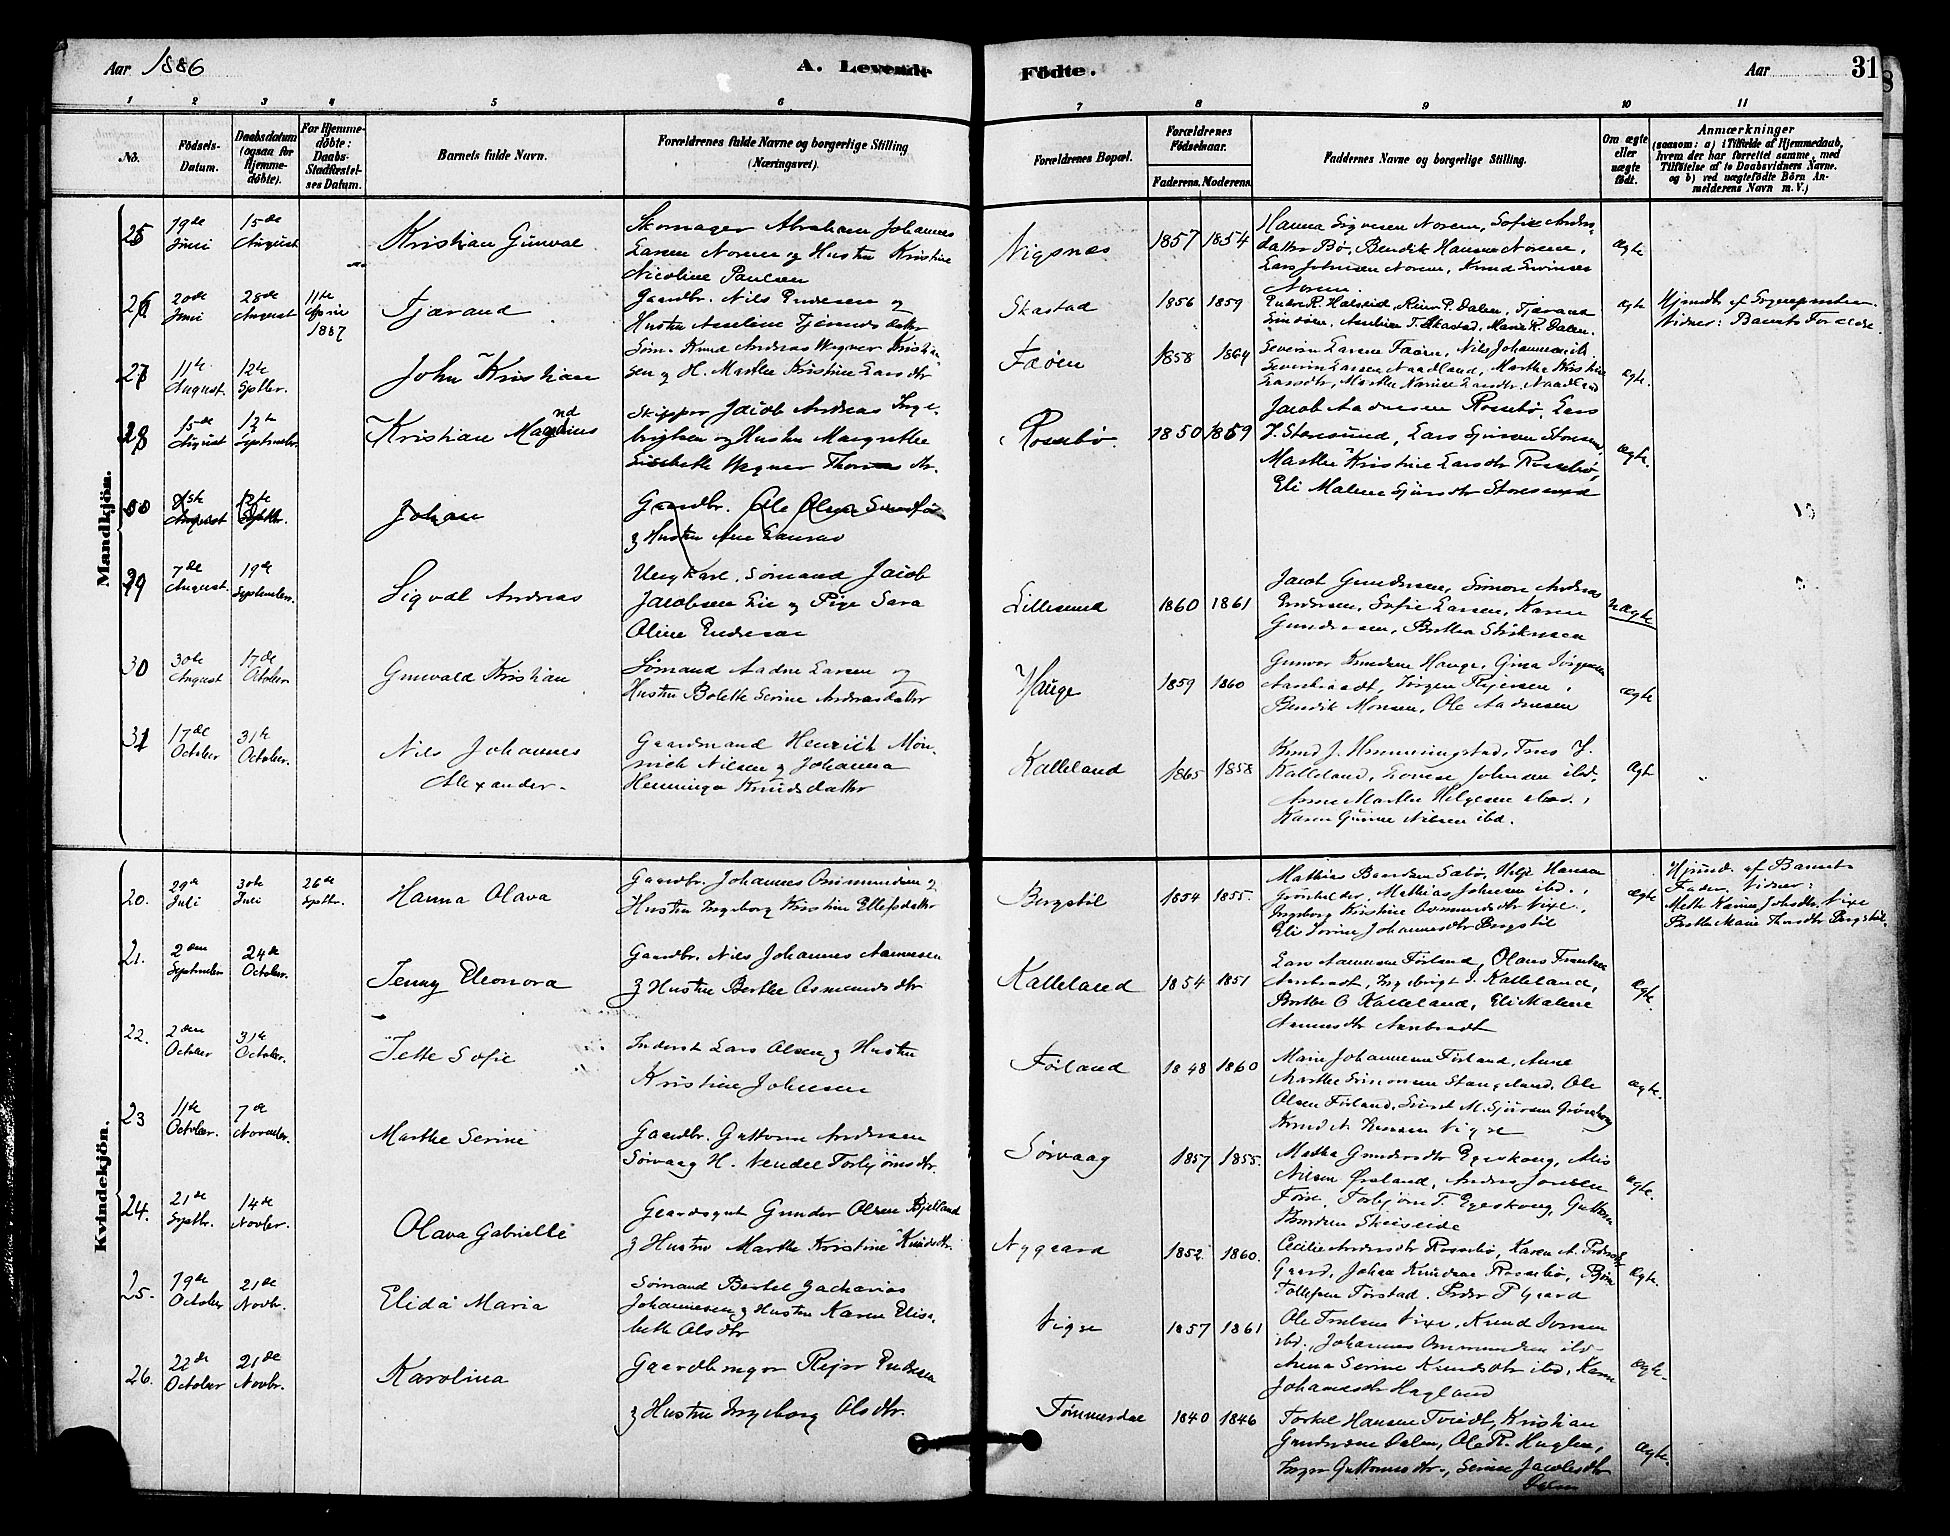 Aar 1886
A. Levende Födte.
Aar
31
1 2 3 4 5 6 7 8 9 10 11
No.
Födsels-
Datum.
Daabsdatum
(ogsaa for
Hjemme-
döbte).
For Hjemme-
döbte:
Daabs-
Stadfæstel-
ses Datum.
Barnets fulde Navn.
Forældrenes fulde Navne og borgerlige Stilling
(Næringsvei).
Forældrenes Bopæl.
Forældrenes
Födselsaar.
Faderens. Moderens.
Faddernes Navne og borgerlige Stilling.
Om ægte
eller
uægte
födt.
Anmærkninger
(saasom: a) i Tilfælde af Hjemmedaab,
hvem der har forrettet samme, med
Tilföielse af to Daabsvidners Navne.
og b) ved uægtefödte Börn An-
melderens Navn m. V.)
Mandkjön.
25
19de Juni
15de August
Kristian Gunval
Skomager Abraham Johannes
Larsen Norem og Hustru Kristine
Nicoline Paulsen
Vigsnæs
1857 1854
Hanna Sigvesen Norem, Sofie Anders-
datter Bø, Bendik Hansen Norem,
Lars Johnsen Norem, Knud
Norem.
ægte
26
20de Juni
28de August
11te April 1887
Tjærand
Gaardbr. Nils Endresen og
Hustru Anseline Tjærandsdatter
Skastad
1856 1859
Endre R. Halseid, Reier P. Dalen, Tjærand
T. Skastad, Marie R. Dalen.
ægte
Hjemdbt af Sognepresten.
Vidner: Barnets Forældre.
27
11te August
12te Septbr.
John Kristian
Søm. Knud Andreas Wegner Kristian-
sen og H. Marthe Kristine Larsdtr
Faøen
1858 1864
Severin Larsen Faøen, Nils Johannesen ib.,
Severin Larsen Naadland, Marthe Kristine
Larsdtr, Marthe Larsdtr, Naadland
ægte.
28
15de August
12te September
Kristian Magnus
nd
Skipper Jacob Andreas Inge-
brigtsen og Hustru Margrethe
Lisebeth Wegner Thomasdtr.
Rossebø.
1850 1859
Jacob Aadnesen Rossebø, Lars
J. Storesund, Lars Sjursen Storesund,
Marthe Kristine Larsdtr Rossebø,
Eli Malene Sjursdtr Storesund
ægte.
August
12te Septbr.
Johan
Gaardbr. Ole Olsen
og Hustru Ane
29
7de August.
19de September.
Sigval Andreas
Ungkarl, Sømand Jacob
Jacobsen Lie og Pige Sara
Oline Endresen
Lillesund
1860 1861
Jacob Gundersen, Simon Andreas
Endresen, Sofie Larsen, Karen
Gundersen, Berthea
uægte
30
30te August
17de October
Gunvald Kristian
Sømand Aadne Larsen og
Hustru Bolette Serine Andreasdatter
Hauge
1859 1860
Gunvor Knudsen Hauge, Gina Jørgensen
Aarebraadt, Jørgen
Bendik Monsen, Ole Aadnesen
ægte
31
17de October
31te October.
Nils Johannes
Alexander.
Gaardmand Henrich Møn-
nich Nilsen og Johanna
Henninga Knudsdatter
Kalleland
1865 1858
Knud J. Hemmingstad, J.
Kalleland, Johnsen ibd,
Anne Marthe Helgesen ibd.,
Karen Gurine Nilsen ibd.
ægte
Kvindekjön.
20.
29de Juli
30te Juli
26de Septbr.
Hanna Olava
Gaardbr. Johannes Ommundsen og
Hustru Ingeborg Kristine Ellefsdatter
Bergstøl
1854 1855.
Mathias Bendsen Sæbø, Helje Hansen
Mathias Johnsen ibd.,
Ingeborg Kristine Osmundsdtr Vixe,
Eli Serine Johannesdtr Bergstøl
ægte
Hjemd. af Barnets
Fader. Vidner:
Mette Karine Johsdtr. Vixe
Berthe Marie Bergstøl.
21.
2den September
24de October.
Jenny Eleonora
Gaardbr. Nils Johannes Aanensen
og Hustru Berthe Osmundsdtr
Kalleland
1854 1851
Lars Aanensen Førland, Olaus
Ingebrigt J. Kalleland,
Berthe O. Kalleland, Eli Malene
ægte.
22.
2den October
31te October.
Jette Sofie
Inderst Lars Olsen og Hustru
Kristine Johnsen
Førland
1848 1860
Marie Johannesen Førland, Anne
Marthe Simonsen Stangeland, Ole
Olsen Førland, M. Sjursen
Vigse
ægte.
23
11te October.
7de November.
Marthe Serine
Gaardbr. Guttorm Andersen
Sørvaag H. Vendel Torbjørnsdtr.
Sørvaag
1857 1855.
Metha Gundersdtr Egeskoug,
Nilsen Øvaland, Andreas Jonsen
Torbjørn T. Egeskoug, Guttorm
Knudsen Skeiseide
ægte.
24.
21de Septbr.
14de Novbr.
Olava Gabrielle
Gaardsgut Gunder Olsen Bjelland
og Hustru Marthe Kristine Knudsdtr.
Nygaard
1852 1860.
Cecilie Andersdtr Rossebø, Karen A. Pedersdtr
Gaard, Johan Knudsen Rossebø,
Tollefsen Førstad. Peder P. Gaard
ægte.
25.
19de October
21de Novbr.
Elida Maria
Sømand Bertel Zacharias
Johannesen og Hustru Karen Elisa-
beth Olsdtr
Vigse
1857 1861
Ole Vixe, Knud Jonsen
ibd. Johannes Ommundsen ibd
Anna Serine Knudsdtr ibd, Karen
Johannesdtr Hagland
ægte.
26.
22de October
21de Novbr.
Karolina
Gaardbruger Reier Endresen
og Hustru Ingeborg Olsdtr.
Tømmerdal
1840 1846
Torkel Hansen Tveidt, Kristian
Gundersen Dalen, Ole R.
Inger Guttormsdtr., Serine Jacobsdtr
Dalen
ægte.